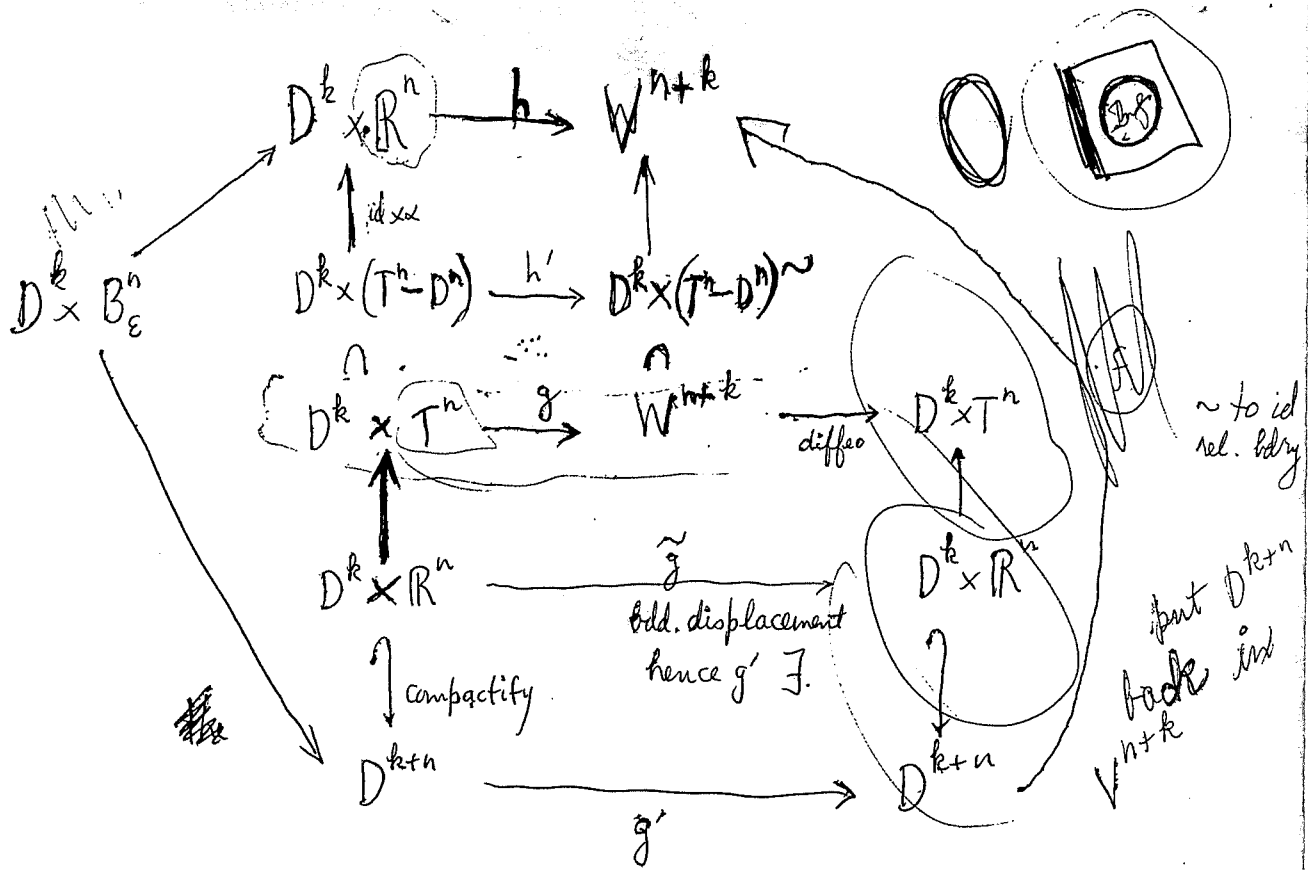 D^k × R^n h W^{n+k}
id × α
D^k × B^n_ε
D^k × (T^n − D^n) h' D^k × (T^n − D^n)~
∩ ∩
D^k × T^n g W^{n+k} diffeo D^k × T^n
~ to id
rel. bdry
D^k × R^n g̃ D^k × R^n
bdd. displacement
hence g' ∃.
compactify
put D^{k+n}
back in
V^{n+k}
D^{k+n} g' D^{k+n}